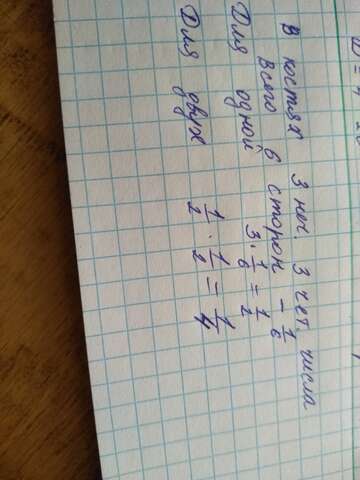 В костях 3 неч. 3 чет. числа
Всего 6 сторон - 1/6
Для одной 3 · 1/6 = 1/2
Для двух 1/2 · 1/2 = 1/4